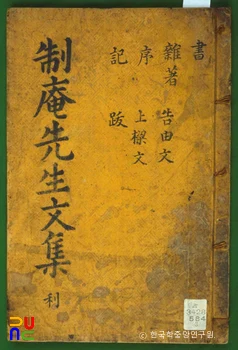 書
雜著 告由文
序 上樑文
記 跋
制庵先生文集 利
ⓒ 한국학중앙연구원